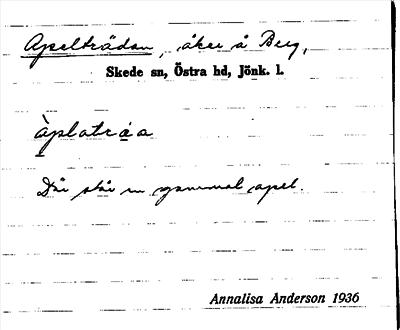 Apelträdan, åker å Berg,
Skede sn, Östra hd, Jönk. l.
àplatráa
Där står en gammal apel.
Annalisa Anderson 1936